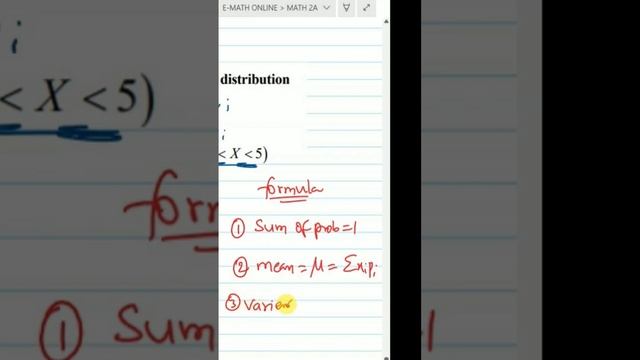 E-MATH ONLINE > MATH 2A
distribution
i
< X < 5)
formula
① Sum of prob = 1
② mean = μ = Σxᵢpᵢ
③ varien